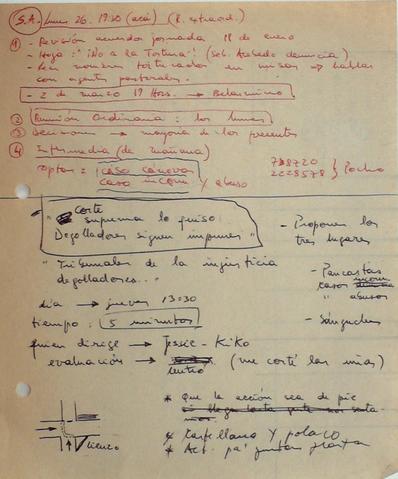 S.A. Lunes 26. 19:30 (acá) (R. extraord.)
① - Revisión acuerdos jornada 18 de enero
- Hoja: "¡No a la Tortura"! (sol. Acabado denuncia)
- Leer nombres torturadores en misas → hablar
con agentes pastorales.
- 2 de marzo 19 Hrs. → Belarmino
② Reunión Ordinaria: los lunes
③ Decisiones → mayoría de los presentes
④ Intermedia (de mañana)
optar: caso cánovas
caso incomu. y abuso
738720
2228578 } Pocho
"Corte
suprema lo quiso:
Degolladores siguen impunes"
- Proponer los
tres lugares
"Tribunales de la injusticia
degolladores..."
- Pancartas
casos incom.
" abusos
día → jueves 13:30
tiempo: 5 minutos
- Sánguches
quien dirige → Jessie - Kiko
evaluación → (me corté las uñas)
* Que la acción sea de pie
* Castellano y polaco
* Act. pa' juntar plata
lienzo